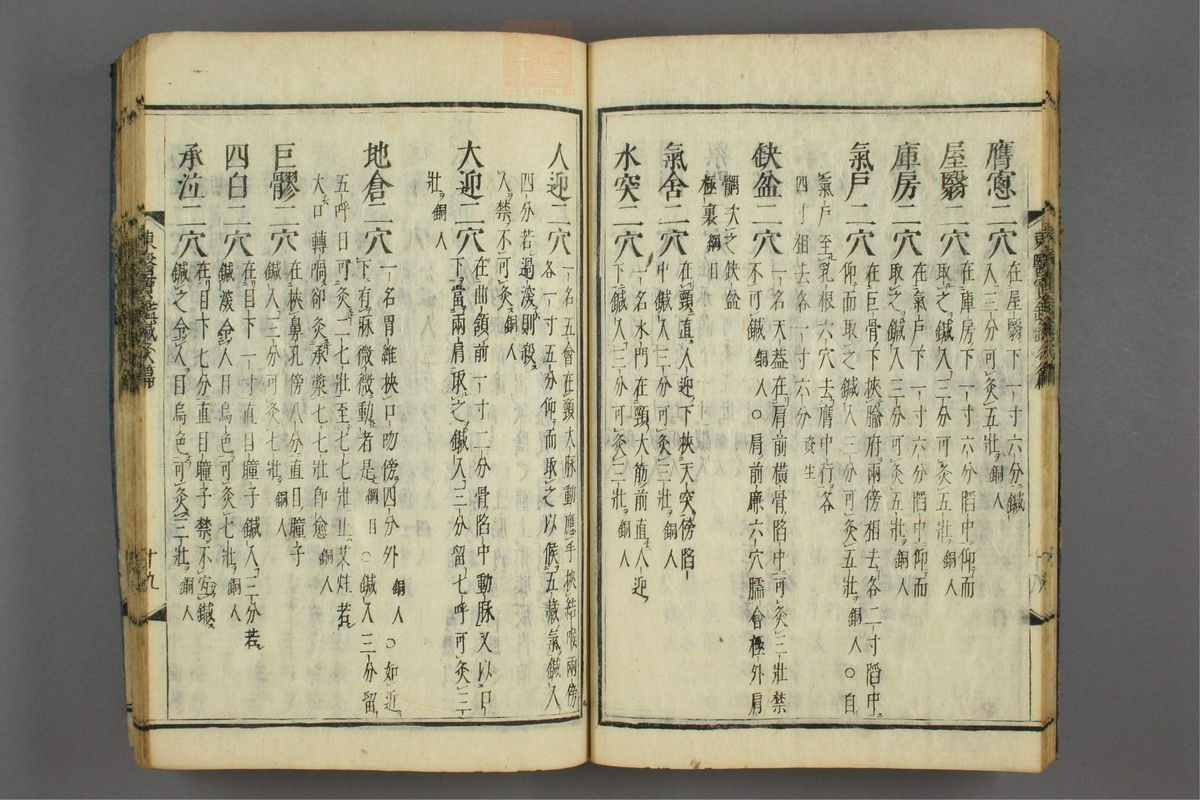 膺窓二穴在屋翳下一寸六分鍼
入三分可灸五壯銅人
屋翳二穴在庫房下一寸六分陷中仰而
取之鍼入三分可灸五壯銅人
庫房二穴在氣戶下一寸六分陷中仰而
取之鍼入三分可灸五壯銅人
氣戶二穴在巨骨下挾腧府兩傍相去各二寸陷中
仰而取之鍼入三分可灸五壯銅人○自
氣戶至乳根六穴去膺中行各
四寸相去各一寸六分資生
缺盆二穴一名天盖在肩前橫骨陷中可灸三壯禁
不可鍼銅人○肩前廉六穴臑會極外肩
髃次之缺盆
極裏綱目
氣舍二穴在頸直人迎下挾天突傍陷
中鍼入三分可灸三壯銅人
水突二穴一名水門在頸大筋前直人迎
下鍼入三分可灸三壯銅人
人迎二穴一名五會在頸大脉動應手挾結喉兩傍
各一寸五分仰而取之以候五藏氣鍼入
四分若過深則殺
人禁不可灸銅人
大迎二穴在曲頷前一寸二分骨陷中動脉又以口
下當兩肩取之鍼入三分留七呼可灸三
壯銅人
地倉二穴一名胃維挾口吻傍四分外銅人○如近
下有脉微微動者是綱目○鍼入三分留
五呼日可灸二七壯至七七壯止艾炷若
大口轉喎却灸承漿七七壯卽愈銅人
巨髎二穴在挾鼻孔傍八分直目瞳子
鍼入三分可灸七壯銅人
四白二穴在目下一寸直目瞳子鍼入三分若
鍼深令人目烏色可灸七壯銅人
承泣二穴在目下七分直目瞳子禁不宜鍼
鍼之令人目烏色可灸三壯銅人
東醫寶鑑鍼灸篇
十九